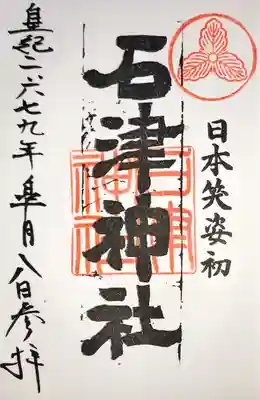 日本笑姿初
石津神社
石津
神社
皇紀二六七九年皐月八日参拝